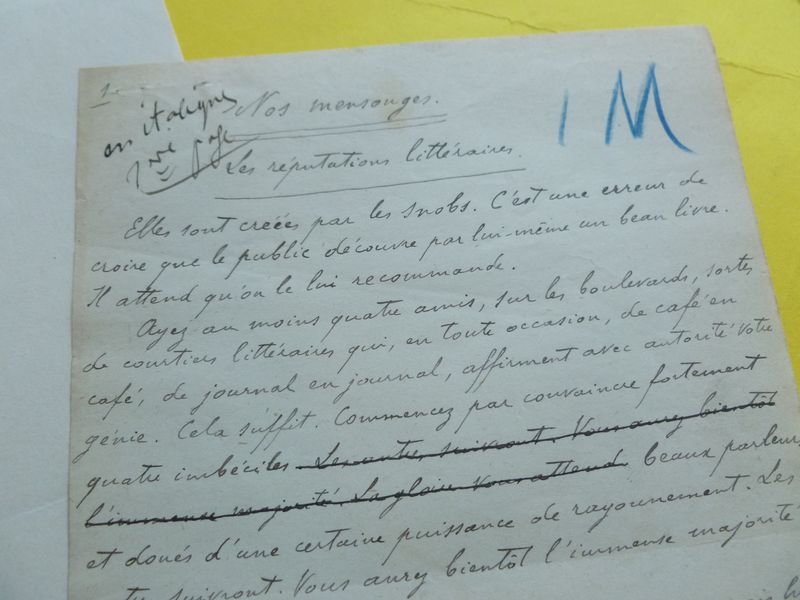 1.
en italiques
1re page
Nos mensonges.
1 M
Les réputations littéraires.
Elles sont créées par les snobs. C'est une erreur de
croire que le public découvre par lui-même un beau livre.
Il attend qu'on le lui recommande.
Ayez au moins quatre amis, sur les boulevards, sortes
de courtiers littéraires qui, en toute occasion, de café en
café, de journal en journal, affirment avec autorité votre
génie. Cela suffit. Commencez par convaincre fortement
quatre imbéciles Les autres suivront. Vous aurez bientôt
l'immense majorité. La gloire vous attend. beaux parleurs,
et doués d'une certaine puissance de rayonnement. Les
suivront. Vous aurez bientôt l'immense majorité